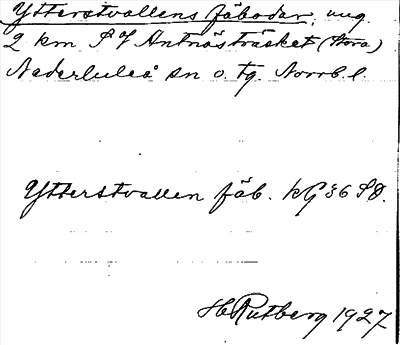 Ytterstvallens fäbodar, ung.
2 km S of Antnästräsket (Stora)
Nederluleå sn o. tg. Norrb. l.
Ytterstvallen fäb. kG 36 SO.
H Rutberg 1927